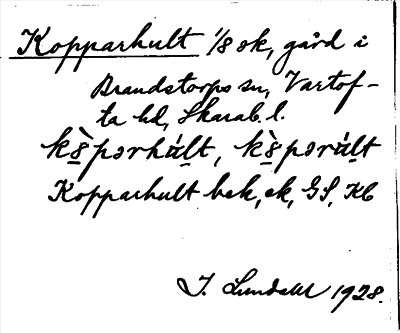 Kopparhult 1/8 sk, gård i
Brandstorps sn, Vartof-
ta hd, Skarab. l.
kö̀pərhúlt, kö̀pərúlt
Kopparhult bek, ek, GS, Kb
I. Lundahl 1928.